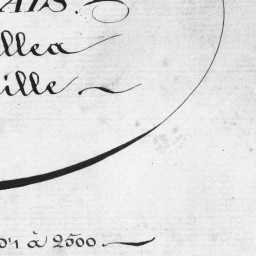 AIS.
llea
ille
01 à 2500